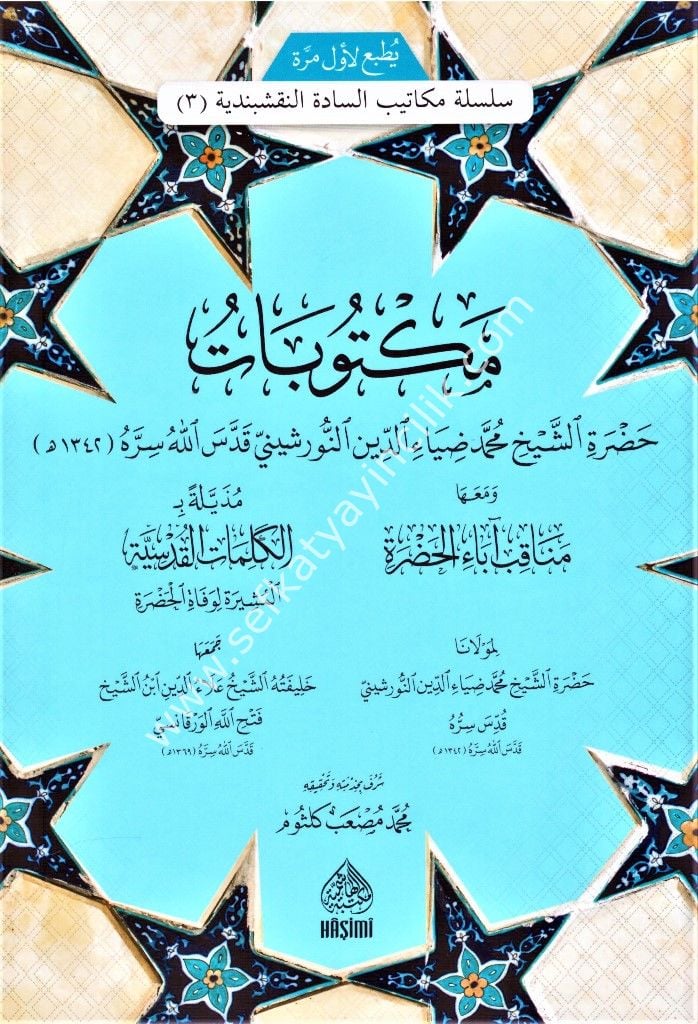 يُطبع لأول مرَّة
سلسلة مكاتيب السادة النقشبندية (٣)
مَكْتُوبَاتُ
حَضْرَةِ الشَّيْخِ مُحَمَّد ضِيَاءِ الدِّينِ النُّورشِينِيّ قَدَّسَ اللهُ سِرَّهُ (١٣٤٢ه)
وَمَعَهَا
مَنَاقِبُ آبَاءِ الحَضْرَةِ
مُذَيَّلَةً بِـ
الكَلِمَاتِ القُدْسِيَّةِ
المُشِيرَةِ لِوَفَاةِ الحَضْرَةِ
لِمَوْلَانَا
حَضْرَةِ الشَّيْخِ مُحَمَّد ضِيَاءِ الدِّينِ النُّورشِينِيّ
قُدِّسَ سِرُّهُ
قَدَّسَ اللهُ سِرَّهُ (١٣٤٢ه)
جَمَعَهَا
خَلِيفَتُهُ الشَّيْخُ عَلَاءُ الدِّينِ ابْنُ الشَّيْخِ
فَتْحِ اللهِ الوَرْقَانِسِيّ
قَدَّسَ اللهُ سِرَّهُ (١٣٦٩ه)
شَرُفَ بِخِدْمَتِهِ وَتَحْقِيقِهِ
مُحَمَّد مُصْعَب كُلثُوم
المكتبة الهاشمية
HÂŞİMÎ
www.sefkatyayincilik.com